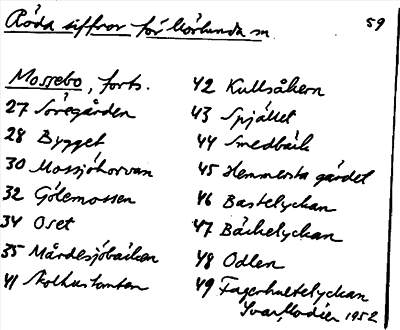 Röda siffror för Mörlunda sn. 59
Mossebo, forts.
27 Söregården
28 Bygget
30 Mossjöhorvan
32 Gölemossen
34 Oset
35 Mårdesjöbäcken
41 Stolhustomten
42 Kullsåkern
43 Spjället
44 Smedbäck
45 Hemmersta gärdet
46 Bastelyckan
47 Bäckelyckan
48 Odlen
49 Fagerhultelyckan
Ivar Modéer 1952